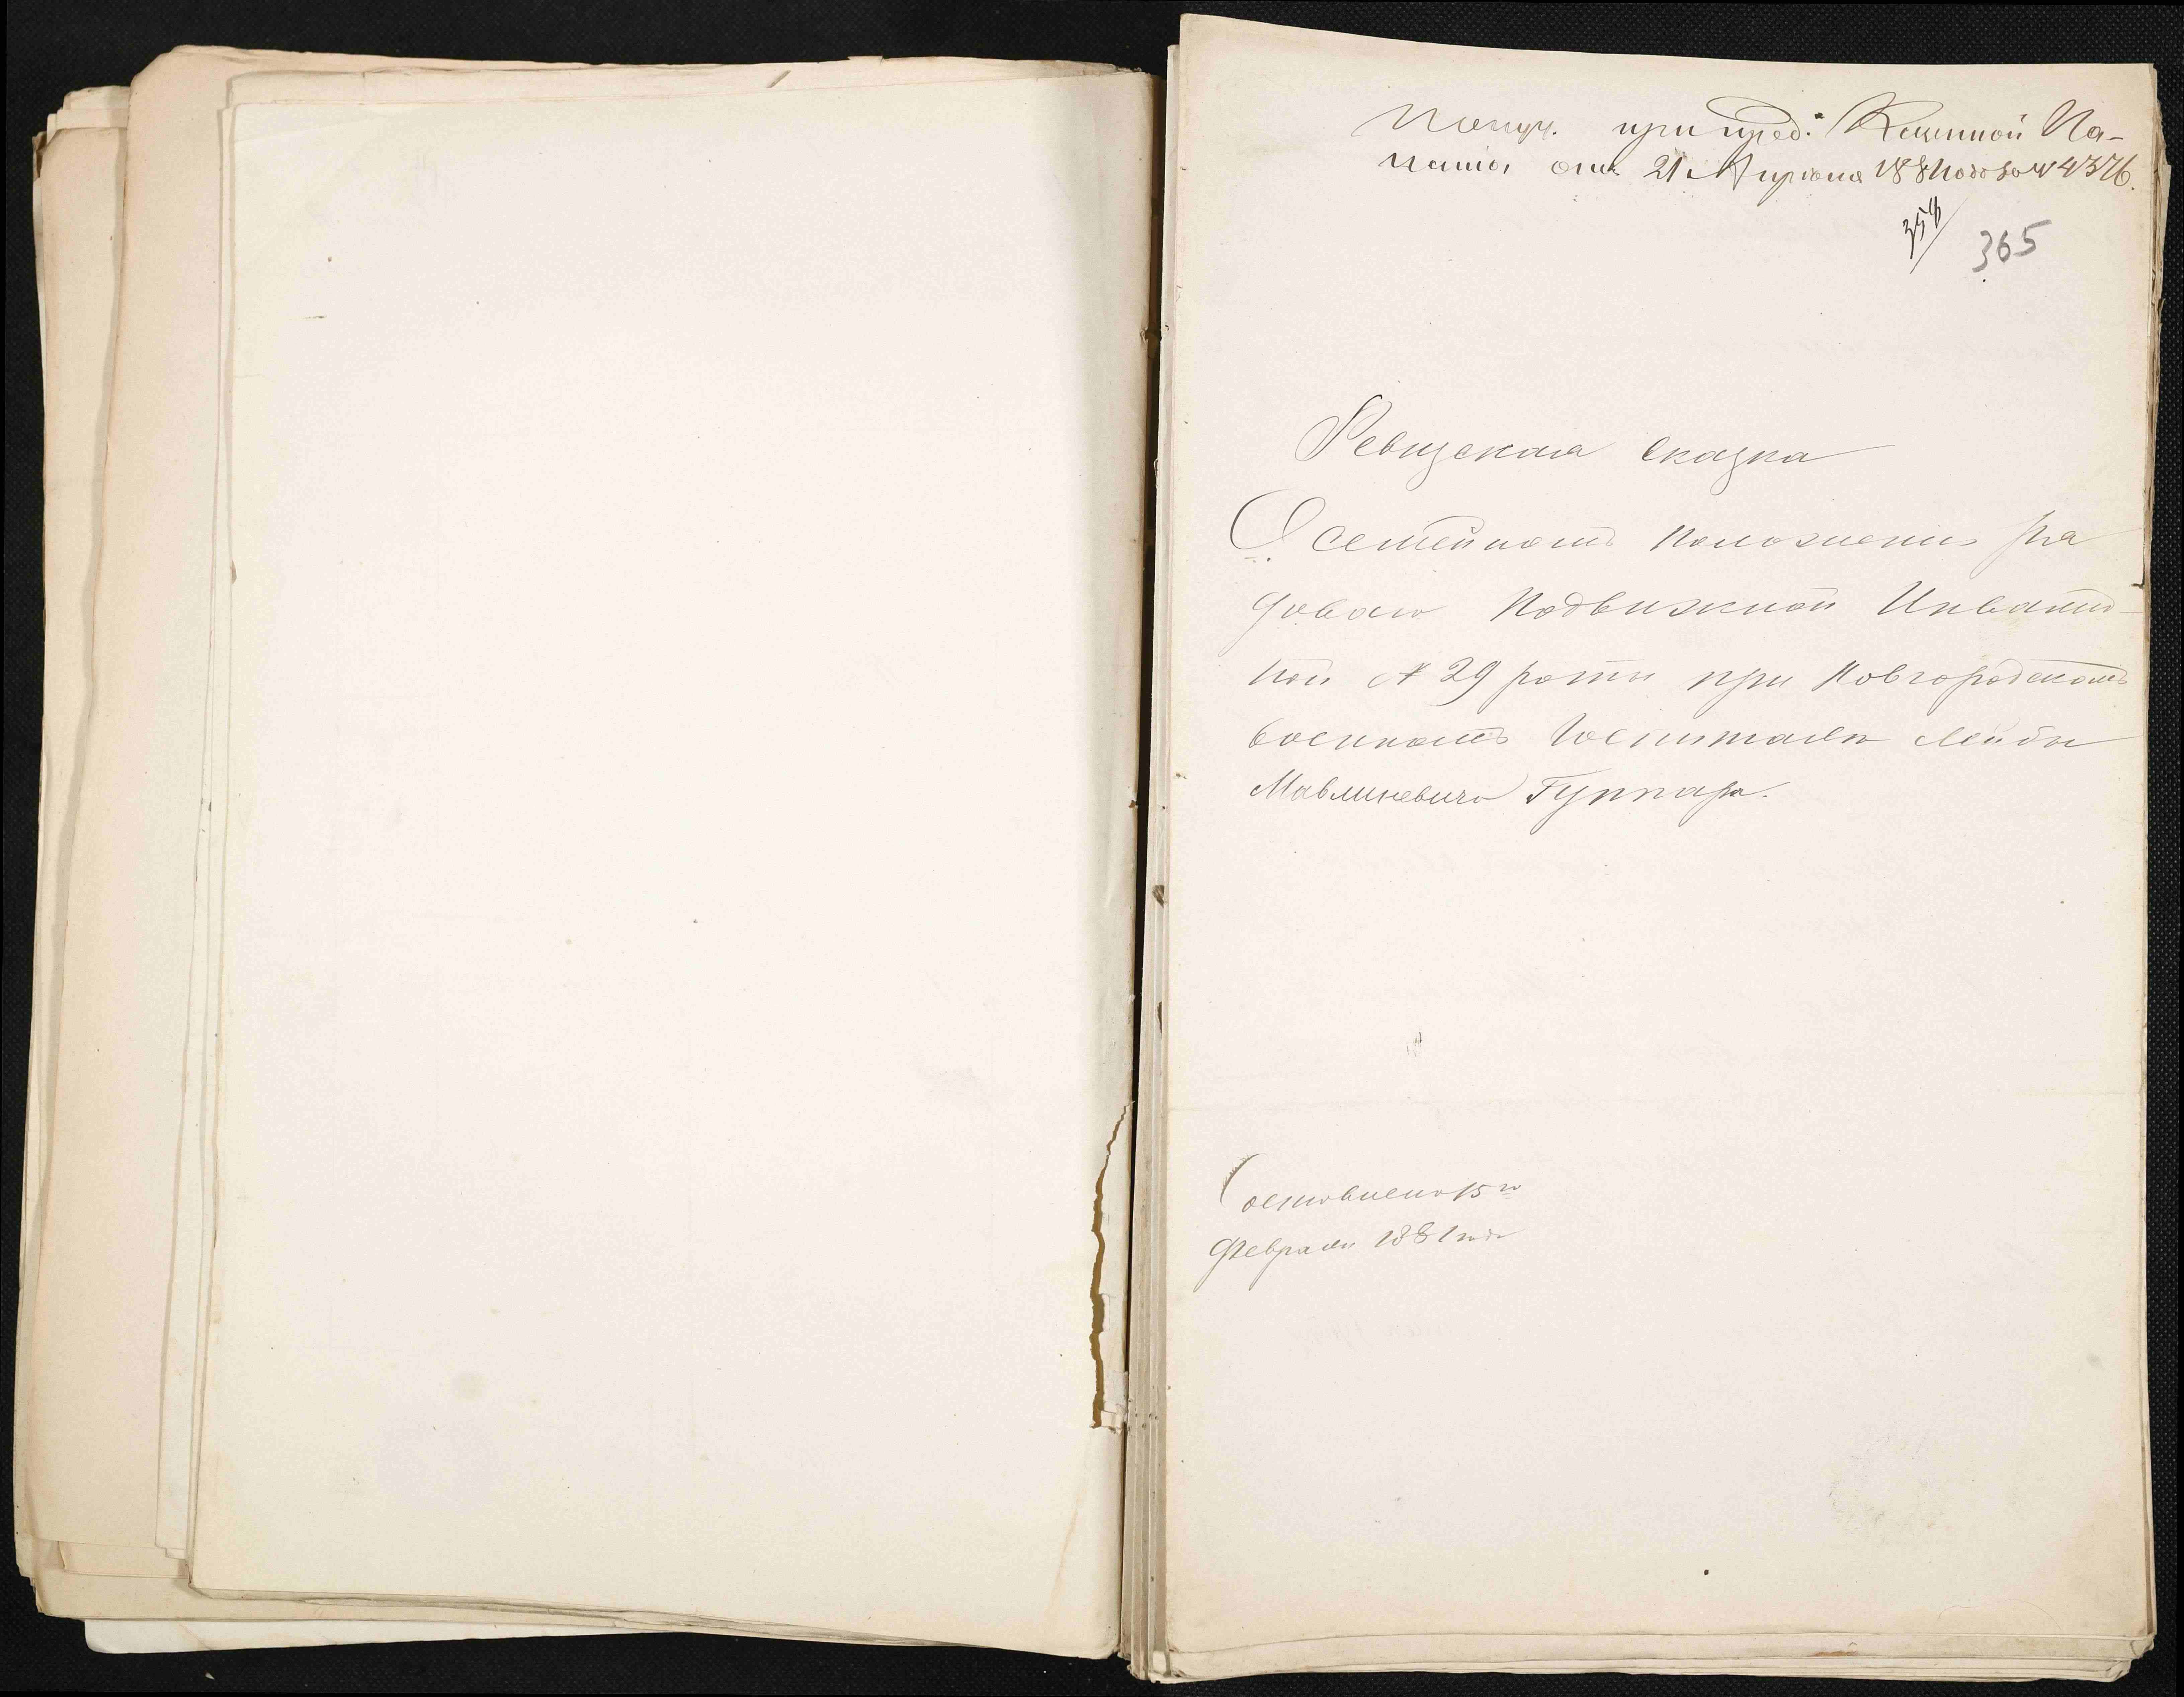 Получ. при пред. Казенной Па-
латы отъ 21 Апреля 1881 года за № 4376.
358
365
Ревизская сказка
О семейномъ положении ря
доваго Подвижной Инвалид-
ной № 29 роты при Новгородскомъ
военномъ Госпитале Лейбы
Мавлихевича Гуппара.
Составлено 15 го
Февраля 1881 года